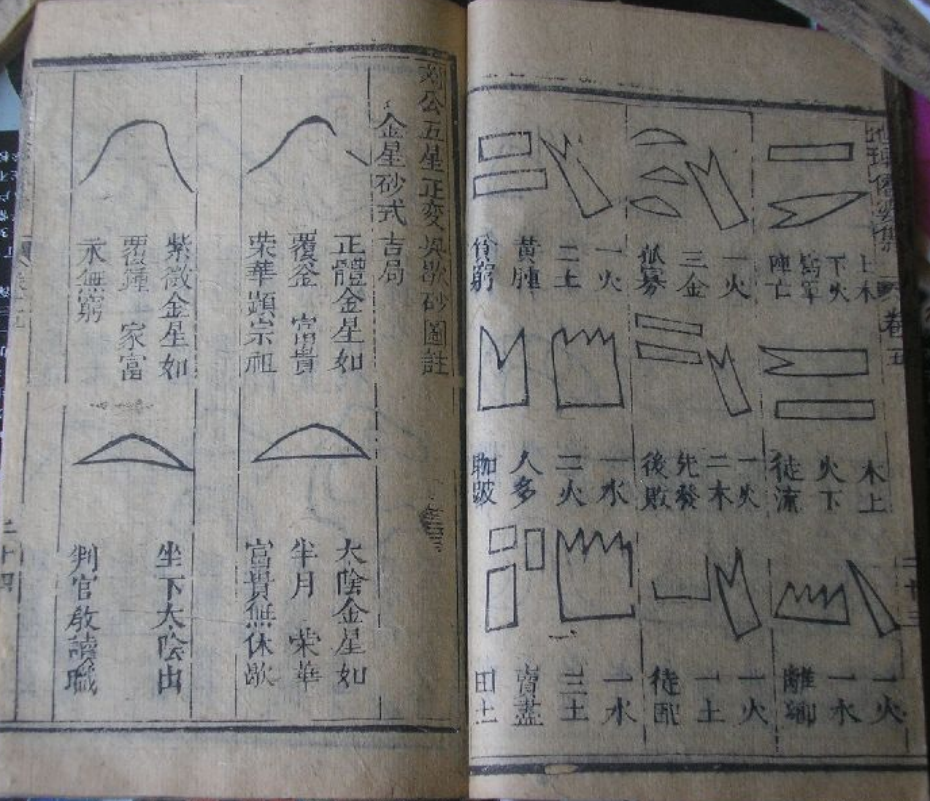 卷五
木上
火下
徒流
一火
一水
一火
三金
孤寡
一火
二木
先發
後敗
一火
一土
徒配
一火
二土
黃腫
貧窮
一水
二火
人多
跏跛
一水
三土
賣盡
田土
二十三
劉公五星正變吳歌砂圖註
金星砂式 吉局
正體金星如
覆釜 富貴
榮華顯宗祖
太陰金星如
半月 榮華
富貴無休歇
紫微金星如
覆鐘 家富
永無窮
坐下太陰出
判官啟讀職
二十四